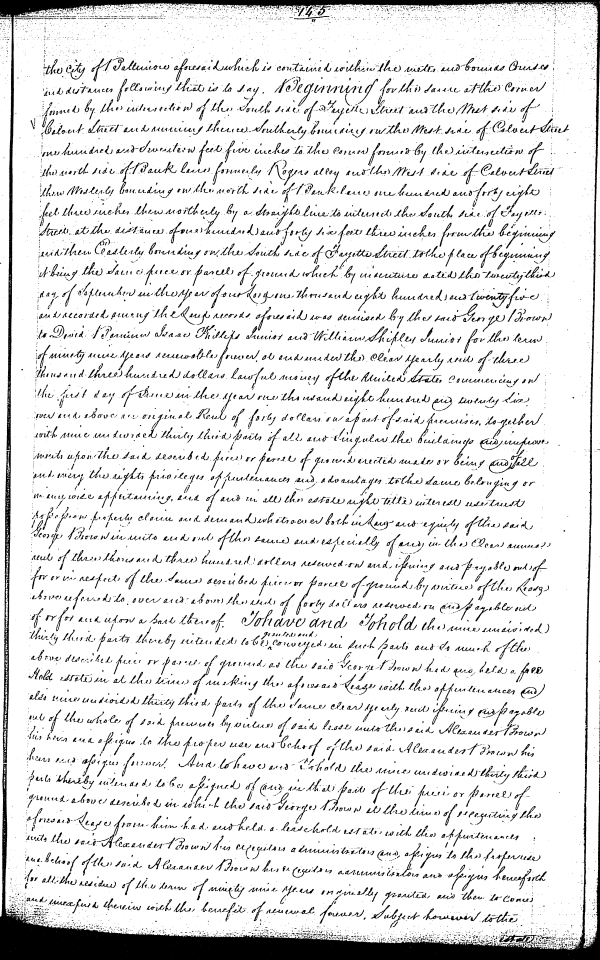 145
the City of Baltimore aforesaid which is contained within the metes and bounds Courses
and distances following that is to say. Beginning for the same at the Corner
formed by the intersection of the South side of Fayette Street and the West side of
Calvert Street and running thence Southerly bounding on the West side of Calvert Street
one hundred and Seventeen feet five inches to the corner formed by the intersection of
the north side of Bank lane formerly Rogers alley and the West side of Calvert Street
then Westerly bounding on the north side of Bank lane one hundred and forty eight
feet three inches then northerly by a Straight line to intersect the South side of Fayette
Street at the distance of one hundred and forty six feet three inches form the beginning
and then Easterly bounding on the South side of Fayette Street to the place of beginning
it being the Same piece or parcel of ground which by indenture dated the twenty third
day of September in the Year of our Lord one thousand eight hundred and twenty five
and recorded among the Land records aforesaid was demised by the said George Brown
to David Isaac Phillips Junior and William Shipley Junior for the term
of ninety nine Years renewable forever, at and under the clear Yearly rent of three
thousand three hundred dollars lawful money of the United States commencing on
the first day of June in the Year one thousand eight hundred and twenty Six
over and above an original Rent of forty dollars on a part of said premises, together
with nine undivided thirty third parts of all and Singular the buildings and improve
ments upon the said described piece or parcel of ground erected made or being and all
and every the rights privileges appurtenances and advantages to the same belonging or
in any wise appertaining, and of and in all the estate right title interest use trust
possession property claim and demand whatsoever both in Law and equity of the said
George Brown in unto and out of the same and especially of and in the Clear annual
rent of three thousand three hundred dollars reserved on and issuing and payable out of
for or in respect of the Same described piece or parcel of ground by virtue of the Lease
above referred to over and above the rent of forty dollars reserved on and payable out
of or for and upon a part thereof. To have and To hold the nine undivided
thirty third parts thereby intended to be granted and conveyed in such parts and so much of the
above described piece or parcel of ground as the said George Brown had and held a free
Hold estate in at the time of making the aforesaid Lease with the appurtenances and
also nine undivided thirty third parts of the same clear Yearly rent issuing and payable
out of the whole of said premises by virtue of said lease unto the said Alexander Brown
his heirs and assigns to the proper use and behoof of the said Alexander Brown his
heirs and assigns forever. And to have and To hold the nine undivided thirty third
parts thereby intended to be assigned of and in that part of the piece or parcel of
ground above described in which the said George Brown at the time of executing the
aforesaid Lease from him had and held a leasehold estate with the appurtenances
unto the said Alexander Brown his executors administrators and assigns to the proper use
and behoof of the said Alexander Brown his executors administrators and assigns henceforth
for all the residue of the term of ninety nine Years originally granted and then to come
and unexpired therein with the benefit of renewal forever, Subject however to the